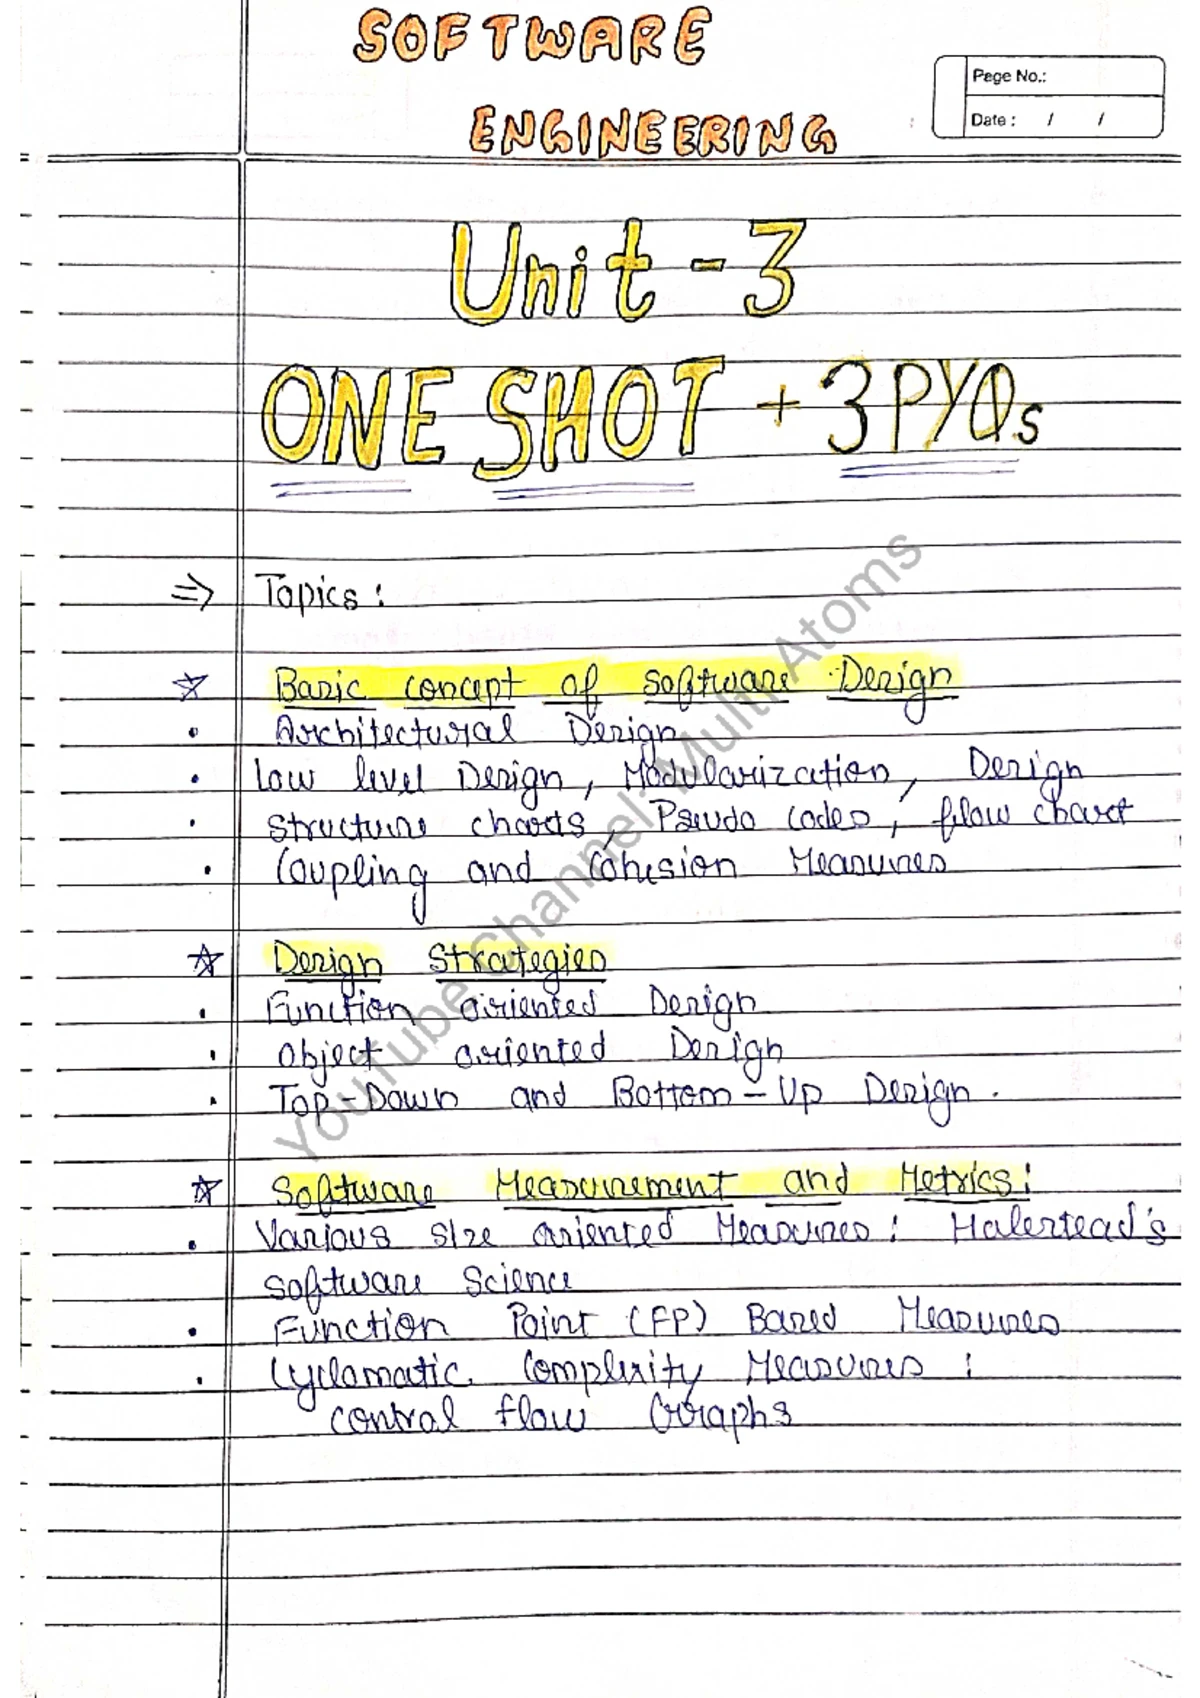 SOFTWARE
ENGINEERING
Page No.:
Date : / /
Unit - 3
ONE SHOT + 3 PYQs
=> Topics :
☆ Basic concept of software Design
• Architectural Design
• Low level Design, Modularization, Design
• structure charts, Pseudo codes, flow chart
• Coupling and Cohesion Measures
☆ Design Strategies
• Function oriented Design
• Object oriented Design
• Top-Down and Bottom-Up Design.
☆ Software Measurement and Metrics :
• Various size oriented Measures : Halestead's
Software Science
• Function Point (FP) Based Measures
• Cyclomatic Complexity Measures :
control flow Graphs
YouTube Channel: Multi Atoms